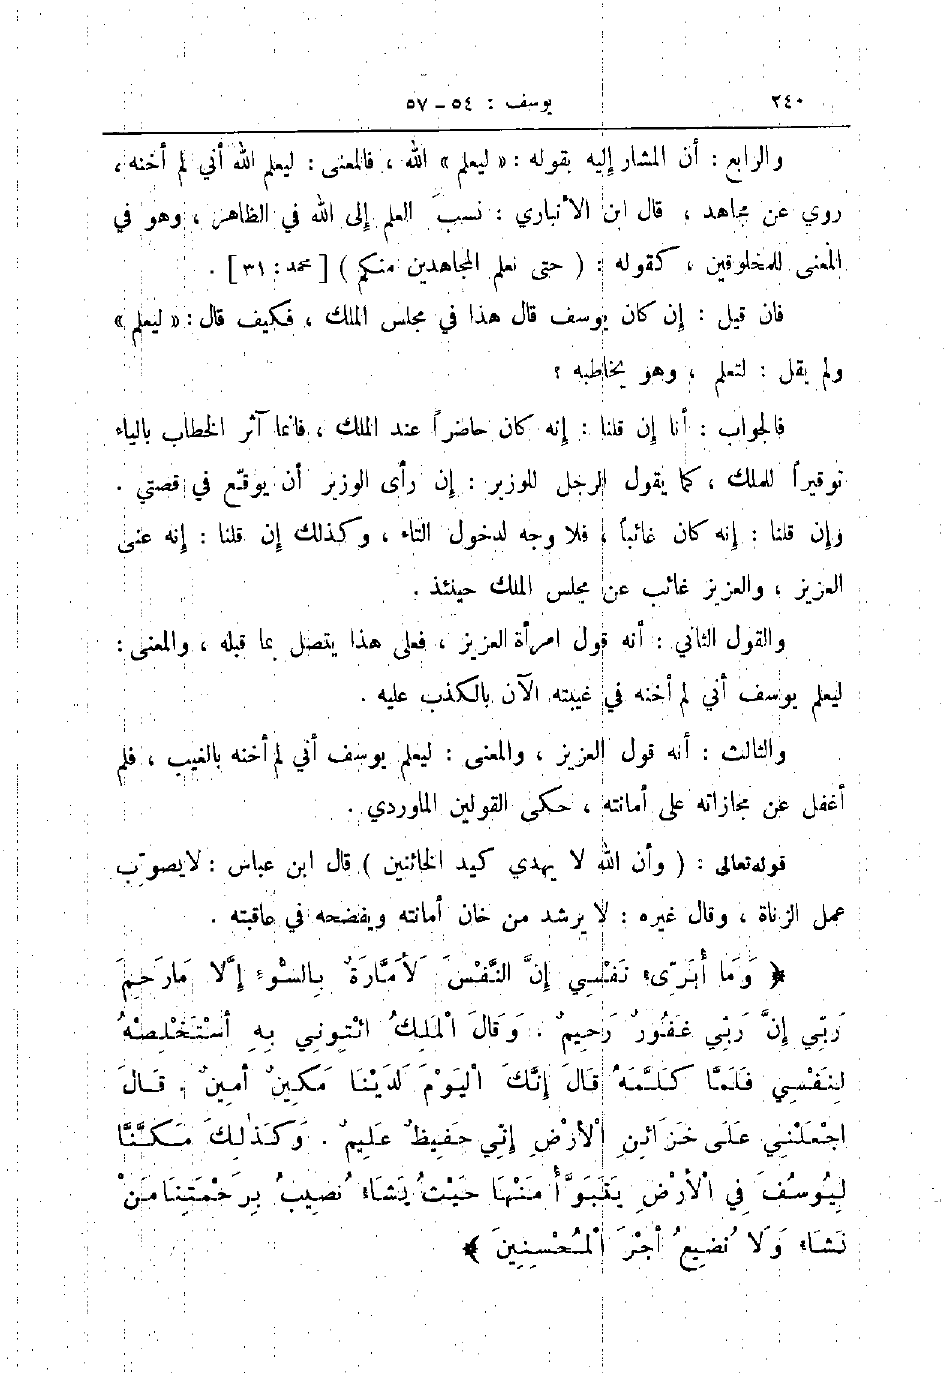 ٢٤٠ يوسف : ٥٤ – ٥٧
والرابع : أن المشار إليه بقوله : « ليعلم » الله ، فالمعنى : ليعلم الله أني لم أخنه ،
روي عن مجاهد ، قال ابن الأنباري : نسبَ العلم إلى الله في الظاهر ، وهو في
المعنى للمخلوقين ، كقوله : ( حتى نعلم المجاهدين منكم ) [ محمد : ٣١ ] .
فان قيل : إن كان يوسف قال هذا في مجلس الملك ، فكيف قال : « ليعلم »
ولم يقل : لتعلم ، وهو يخاطبه ؟
فالجواب : أنا إن قلنا : إنه كان حاضراً عند الملك ، فانما آثر الخطاب بالياء
توقيراً للملك ، كما يقول الرجل للوزير : إن رأى الوزير أن يوقّع في قصتي .
وإن قلنا : إنه كان غائباً ، فلا وجه لدخول التاء ، وكذلك إن قلنا : إنه عنى
العزيز ، والعزيز غائب عن مجلس الملك حينئذ .
والقول الثاني : أنه قول امرأة العزيز ، فعلى هذا يتصل بما قبله ، والمعنى :
ليعلم يوسف أني لم أخنه في غيبته الآن بالكذب عليه .
والثالث : أنه قول العزيز ، والمعنى : ليعلم يوسف أني لم أخنه بالغيب ، فلم
أغفل عن مجازاته على أمانته ، حكى القولين الماوردي .
قوله تعالى : ( وأن الله لا يهدي كيد الخائنين ) قال ابن عباس : لا يصوِّب
عمل الزناة ، وقال غيره : لا يرشد من خان أمانته ويفضحه في عاقبته .
﴿ وَمَا أُبَرِّىءُ نَفْسِي إِنَّ النَّفْسَ لَأَمَّارَةٌ بِالسُّوءِ إِلَّا مَا رَحِمَ
رَبِّي إِنَّ رَبِّي غَفُورٌ رَحِيمٌ . وَقَالَ الْمَلِكُ ائْتُونِي بِهِ أَسْتَخْلِصْهُ
لِنَفْسِي فَلَمَّا كَلَّمَهُ قَالَ إِنَّكَ الْيَوْمَ لَدَيْنَا مَكِينٌ أَمِينٌ . قَالَ
اجْعَلْنِي عَلَى خَزَائِنِ الْأَرْضِ إِنِّي حَفِيظٌ عَلِيمٌ . وَكَذَلِكَ مَكَّنَّا
لِيُوسُفَ فِي الْأَرْضِ يَتَبَوَّأُ مِنْهَا حَيْثُ يَشَاءُ نُصِيبُ بِرَحْمَتِنَا مَنْ
نَشَاءُ وَلَا نُضِيعُ أَجْرَ الْمُحْسِنِينَ ﴾